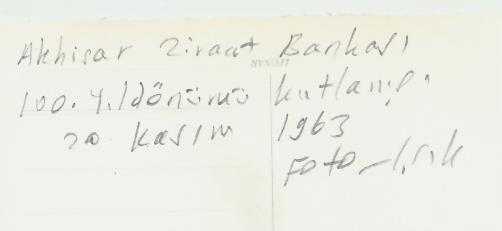 Akhisar Ziraat Bankası
100. Yıldönümü kutlanışı
20 Kasım 1963
Foto